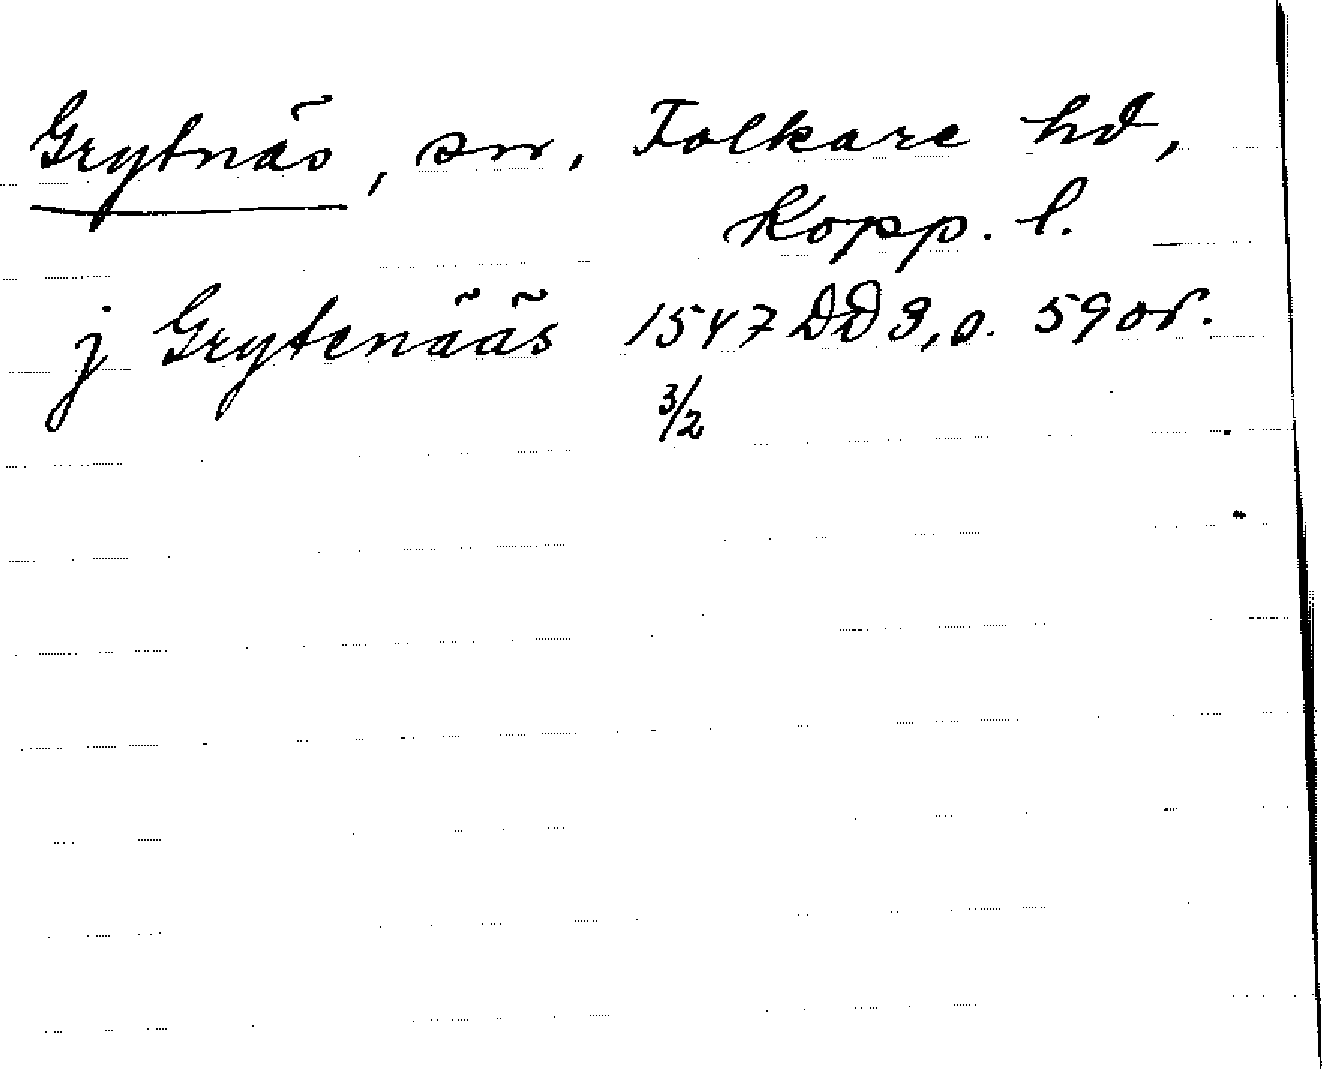 Grytnäs, sn, Folkare hd,
Kopp. l.
j Grytenääs 1547 DD 3, s. 59 or.
3/2